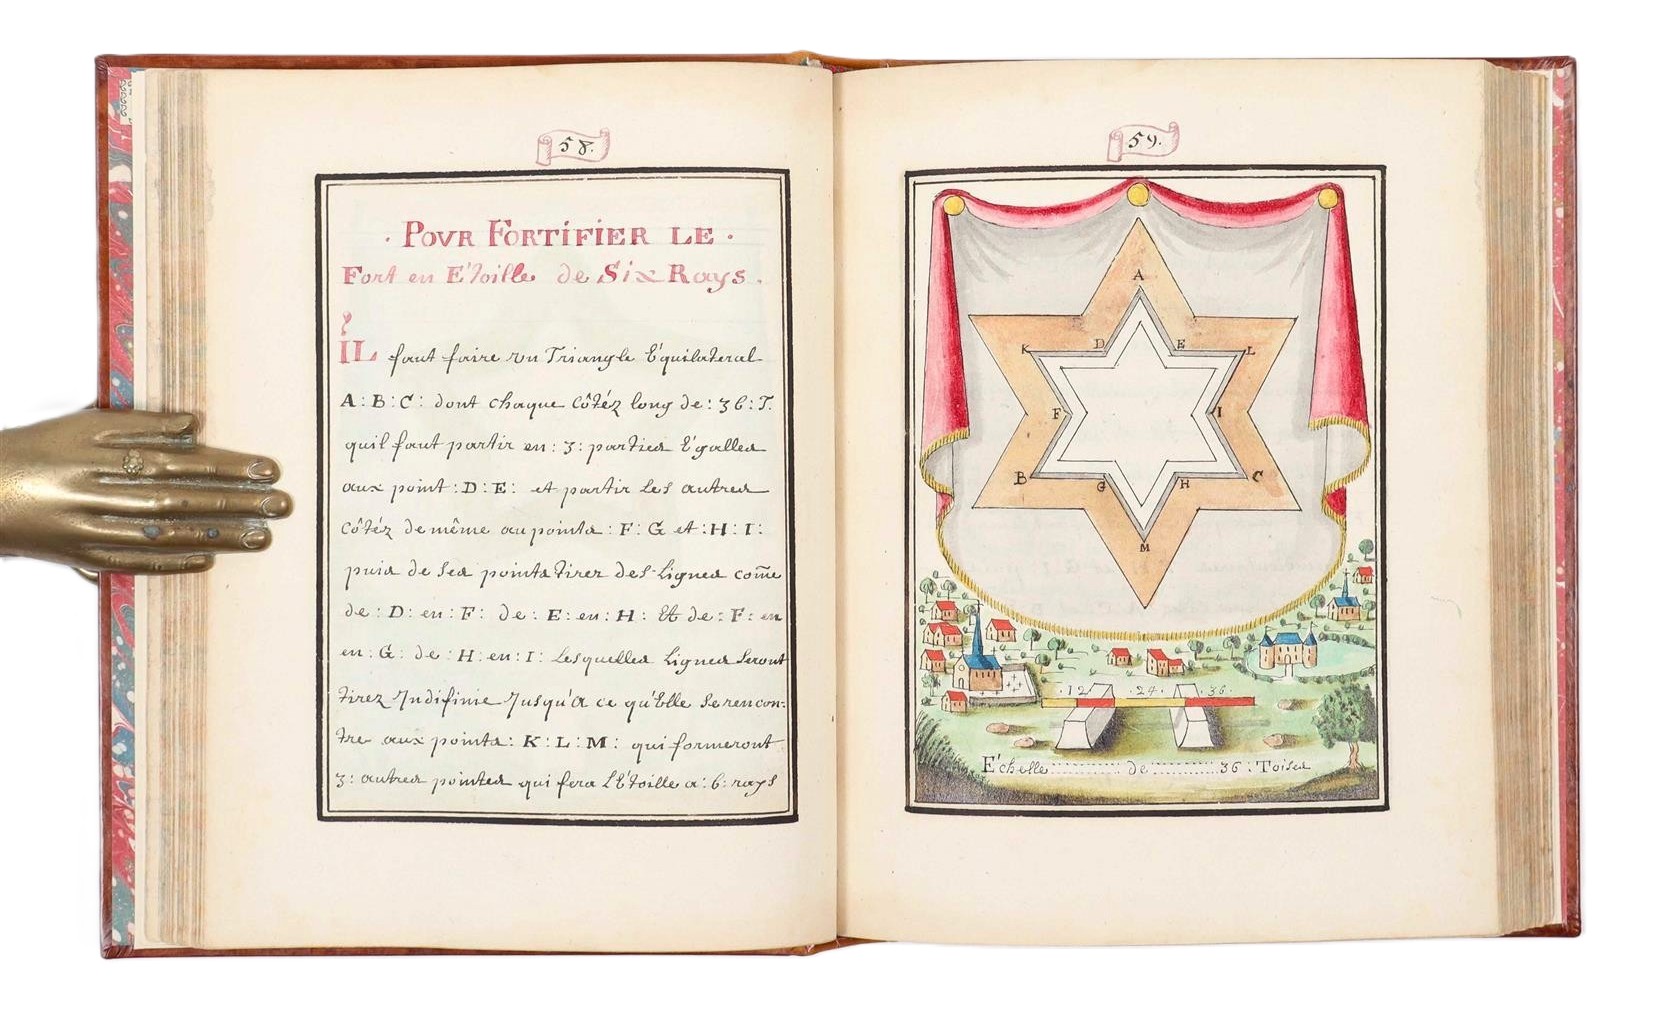 58.
· POVR FORTIFIER LE ·
Fort en E'toille de Six Rays.
IL faut faire vn Triangle E'quilateral
A : B : C : dont chaque Côtéz long de : 36 : T.
quil faut partir en : 3 : parties E'galles
aux point : D : E : et partir Les autres
Côtéz de même au points : F : G et : H : I :
puis de Ses points tirer des Lignes com̃e
de : D : en : F : de : E : en : H : Et de : F : en
en : G : de : H : en : I : Lesquelles Lignes Seront
tirez Jndifinie Jusqu'a ce qu'Elle Se rencon-
tre aux points : K : L : M : qui formeront
3 : autres pointes qui fera L'E'toille a : 6 : rays
59.
A
K D E L
F I
B G H C
M
12 · 24 · 36 ·
E'chelle ............ de ............ 36 : Toises